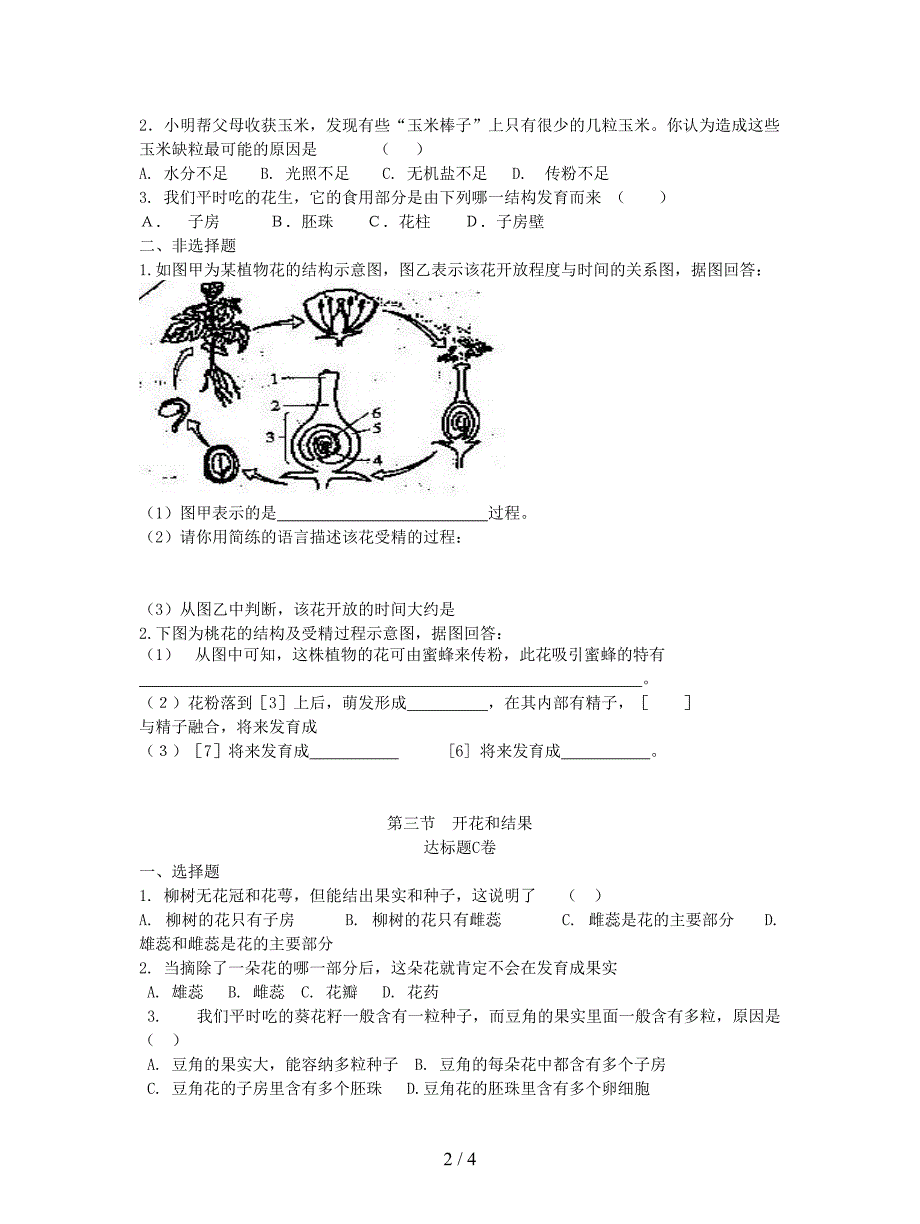 2．小明帮父母收获玉米，发现有些“玉米棒子”上只有很少的几粒玉米。你认为造成这些
玉米缺粒最可能的原因是 （ ）
A. 水分不足 B. 光照不足 C. 无机盐不足 D. 传粉不足
3. 我们平时吃的花生，它的食用部分是由下列哪一结构发育而来 （ ）
Ａ． 子房 Ｂ．胚珠 Ｃ．花柱 Ｄ．子房壁
二、非选择题
1.如图甲为某植物花的结构示意图，图乙表示该花开放程度与时间的关系图，据图回答：
1
2
3
6
5
4
（1）图甲表示的是__________________________过程。
（2）请你用简练的语言描述该花受精的过程：
（3）从图乙中判断，该花开放的时间大约是
2.下图为桃花的结构及受精过程示意图，据图回答：
（1） 从图中可知，这株植物的花可由蜜蜂来传粉，此花吸引蜜蜂的特有
______________________________________________________________。
（２）花粉落到［3］上后，萌发形成__________，在其内部有精子，［ ］
与精子融合，将来发育成
（３）［7］将来发育成___________ ［6］将来发育成___________。
第三节 开花和结果
达标题C卷
一、选择题
1. 柳树无花冠和花萼，但能结出果实和种子，这说明了 （ ）
A. 柳树的花只有子房 B. 柳树的花只有雌蕊 C. 雌蕊是花的主要部分 D.
雄蕊和雌蕊是花的主要部分
2. 当摘除了一朵花的哪一部分后，这朵花就肯定不会在发育成果实
A. 雄蕊 B. 雌蕊 C. 花瓣 D. 花药
3. 我们平时吃的葵花籽一般含有一粒种子，而豆角的果实里面一般含有多粒，原因是
（ ）
A. 豆角的果实大，能容纳多粒种子 B. 豆角的每朵花中都含有多个子房
C. 豆角花的子房里含有多个胚珠 D.豆角花的胚珠里含有多个卵细胞
2 / 4